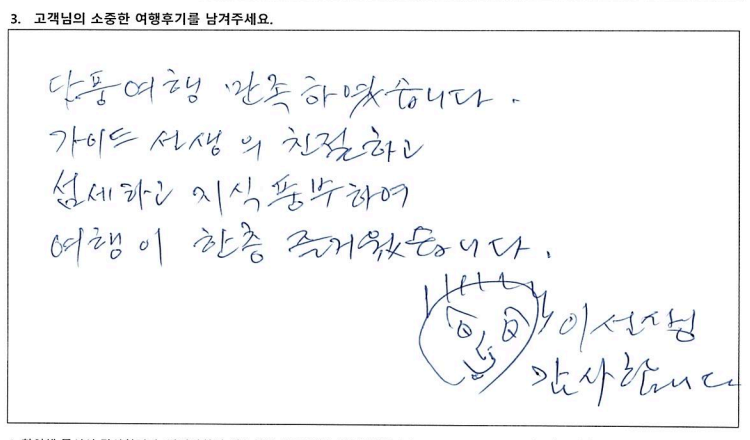 3. 고객님의 소중한 여행후기를 남겨주세요.
단풍여행 만족하였습니다.
가이드 선생의 친절하고
섬세하고 지식풍부하여
여행이 한층 즐거웠습니다.
이선생님
감사합니다